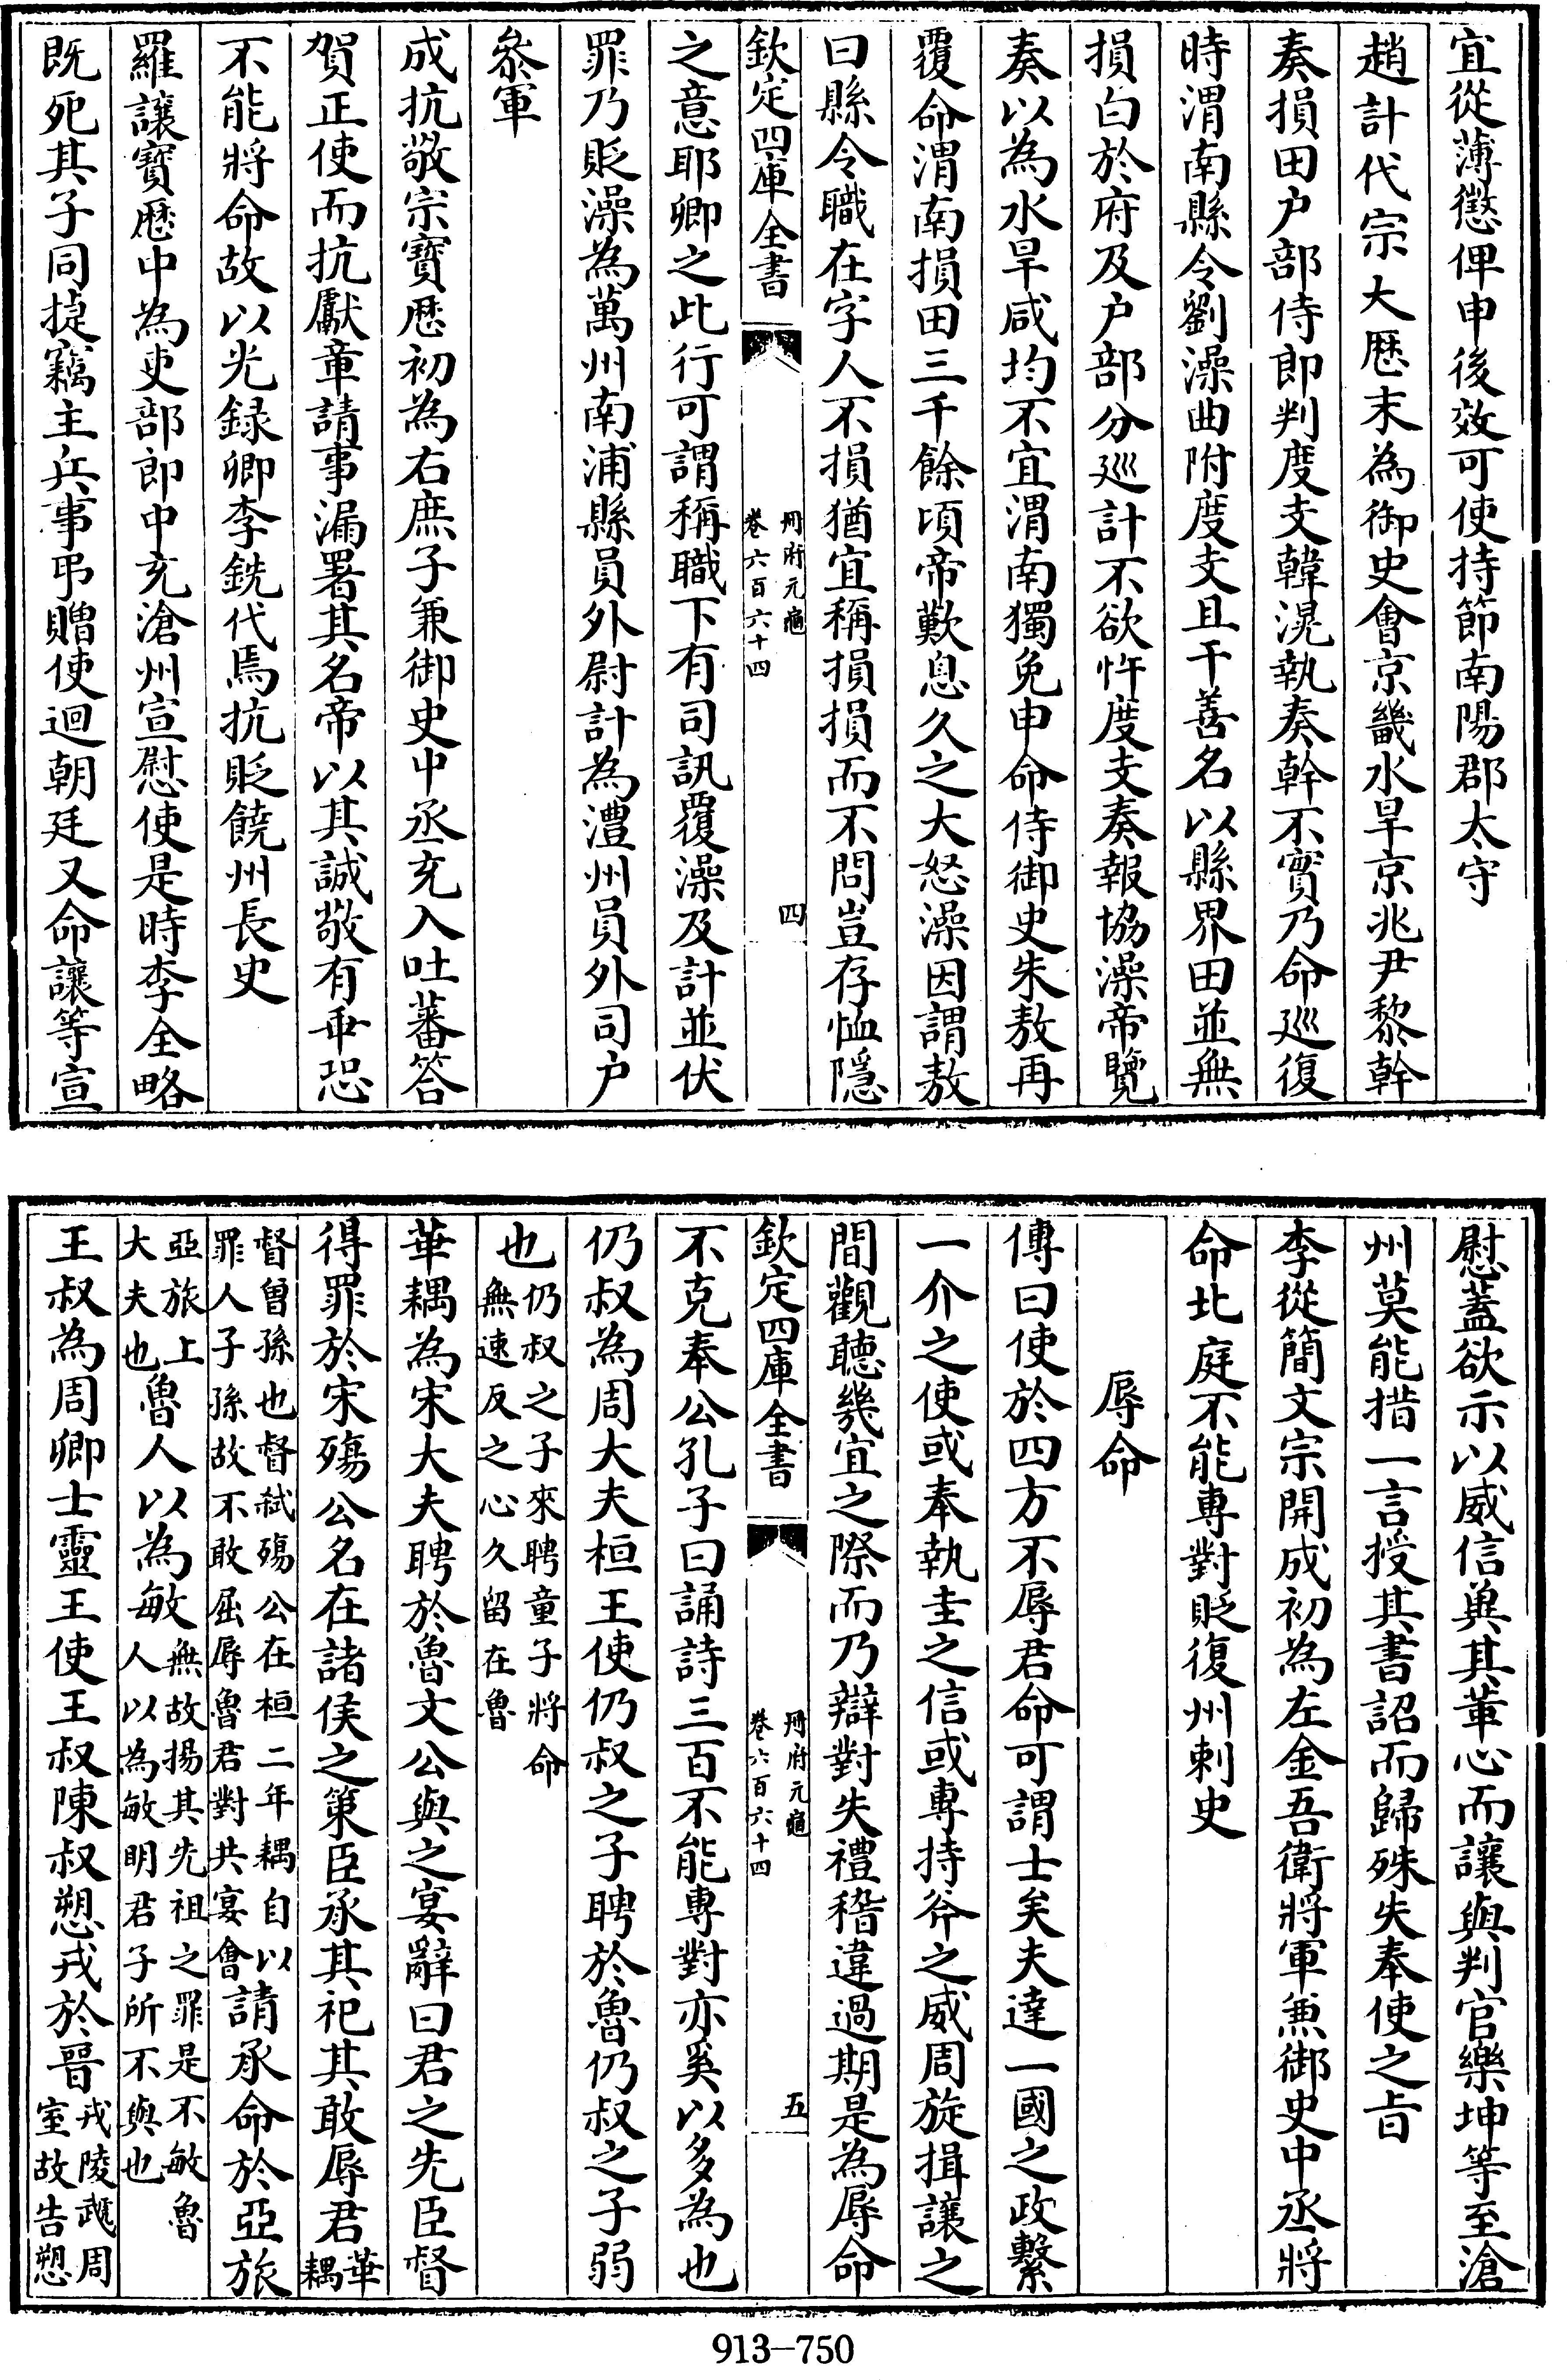 宜從薄懲俾申後效可使持節南陽郡太守
趙計代宗大厯末為御史會京畿水旱京兆尹黎幹
奏損田户部侍郎判度支韓滉執奏幹不實乃命廵復
時渭南縣令劉澡曲附度支且干善名以縣界田並無
損白於府及户部分廵計不欲忤度支奏報協澡帝覽
奏以為水旱咸均不宜渭南獨免申命侍御史朱敖再
覆命渭南損田三千餘頃帝歎息久之大怒澡因謂敖
曰縣令職在字人不損猶宜稱損損而不問豈存恤隱
欽定四庫全書
册府元龜
卷六百六十四
四
之意耶卿之此行可謂稱職下有司訊覆澡及計並伏
罪乃貶澡為萬州南浦縣員外尉計為澧州員外司户
叅軍
成抗敬宗寳厯初為右庶子兼御史中丞充入吐蕃答
賀正使而抗獻章請事漏署其名帝以其誠敬有乖恐
不能將命故以光録卿李銑代焉抗貶饒州長史
羅讓寳厯中為吏部郎中充滄州宣慰使是時李全略
既死其子同捷竊主兵事弔贈使迴朝廷又命讓等宣
慰蓋欲示以威信兾其革心而讓與判官樂坤等至滄
州莫能措一言授其書詔而歸殊失奉使之旨
李從簡文宗開成初為左金吾衛將軍兼御史中丞將
命北庭不能専對貶復州刺史
辱命
傳曰使於四方不辱君命可謂士矣夫達一國之政繫
一介之使或奉執圭之信或專持斧之威周旋揖讓之
間觀聽幾宜之際而乃辯對失禮稽違過期是為辱命
欽定四庫全書
册府元龜
卷六百六十四
五
不克奉公孔子曰誦詩三百不能專對亦奚以多為也
仍叔為周大夫桓王使仍叔之子聘於魯仍叔之子弱
也仍叔之子來聘童子將命無速反之心久留在魯
華耦為宋大夫聘於魯文公與之宴辭曰君之先臣督
得罪於宋殤公名在諸侯之策臣承其祀其敢辱君華耦
督曾孫也督弑殤公在桓二年耦自以罪人子孫故不敢屈辱魯君對共宴會請承命於亞旅
亞旅上大夫也魯人以為敏無故揚其先祖之罪是不敏魯人以為敏明君子所不與也
王叔為周卿士靈王使王叔陳叔愬戎於晉戎陵虣周室故告愬
913-750